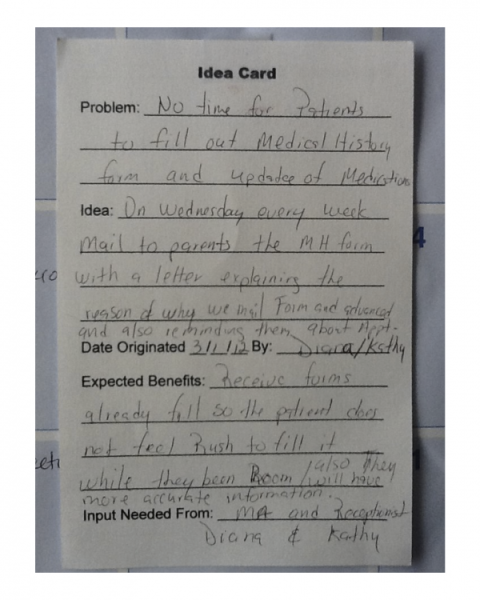 Idea Card
Problem: No time for Patients
to fill out Medical History
form and updates of Medications
Idea: On Wednesday every week
Mail to parents the MH form
with a letter explaining the
reason of why we mail Form and advanced
and also reminding them about Appt.
Date Originated 3/1/12 By: Diana/Kathy
Expected Benefits: Receive forms
already fill so the patient does
not feel Rush to fill it
while they been Room / also They
will have
more accurate information.
Input Needed From: MA and Receptionist
Diana & Kathy
4